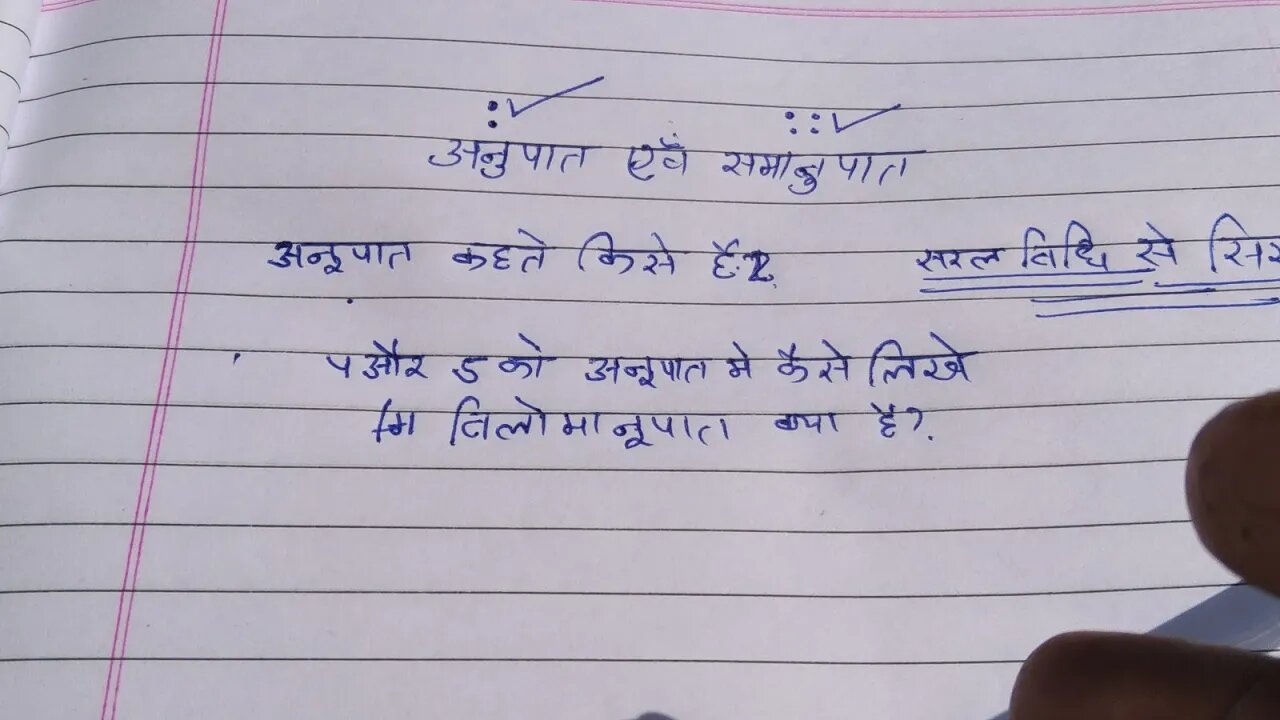 : ::
अनुपात एवं समानुपात
अनूपात कहते किसे हैं? सरल विधि से
५ और 5 को अनूपात मे कैसे लिखे
विलोमानूपात क्या है?